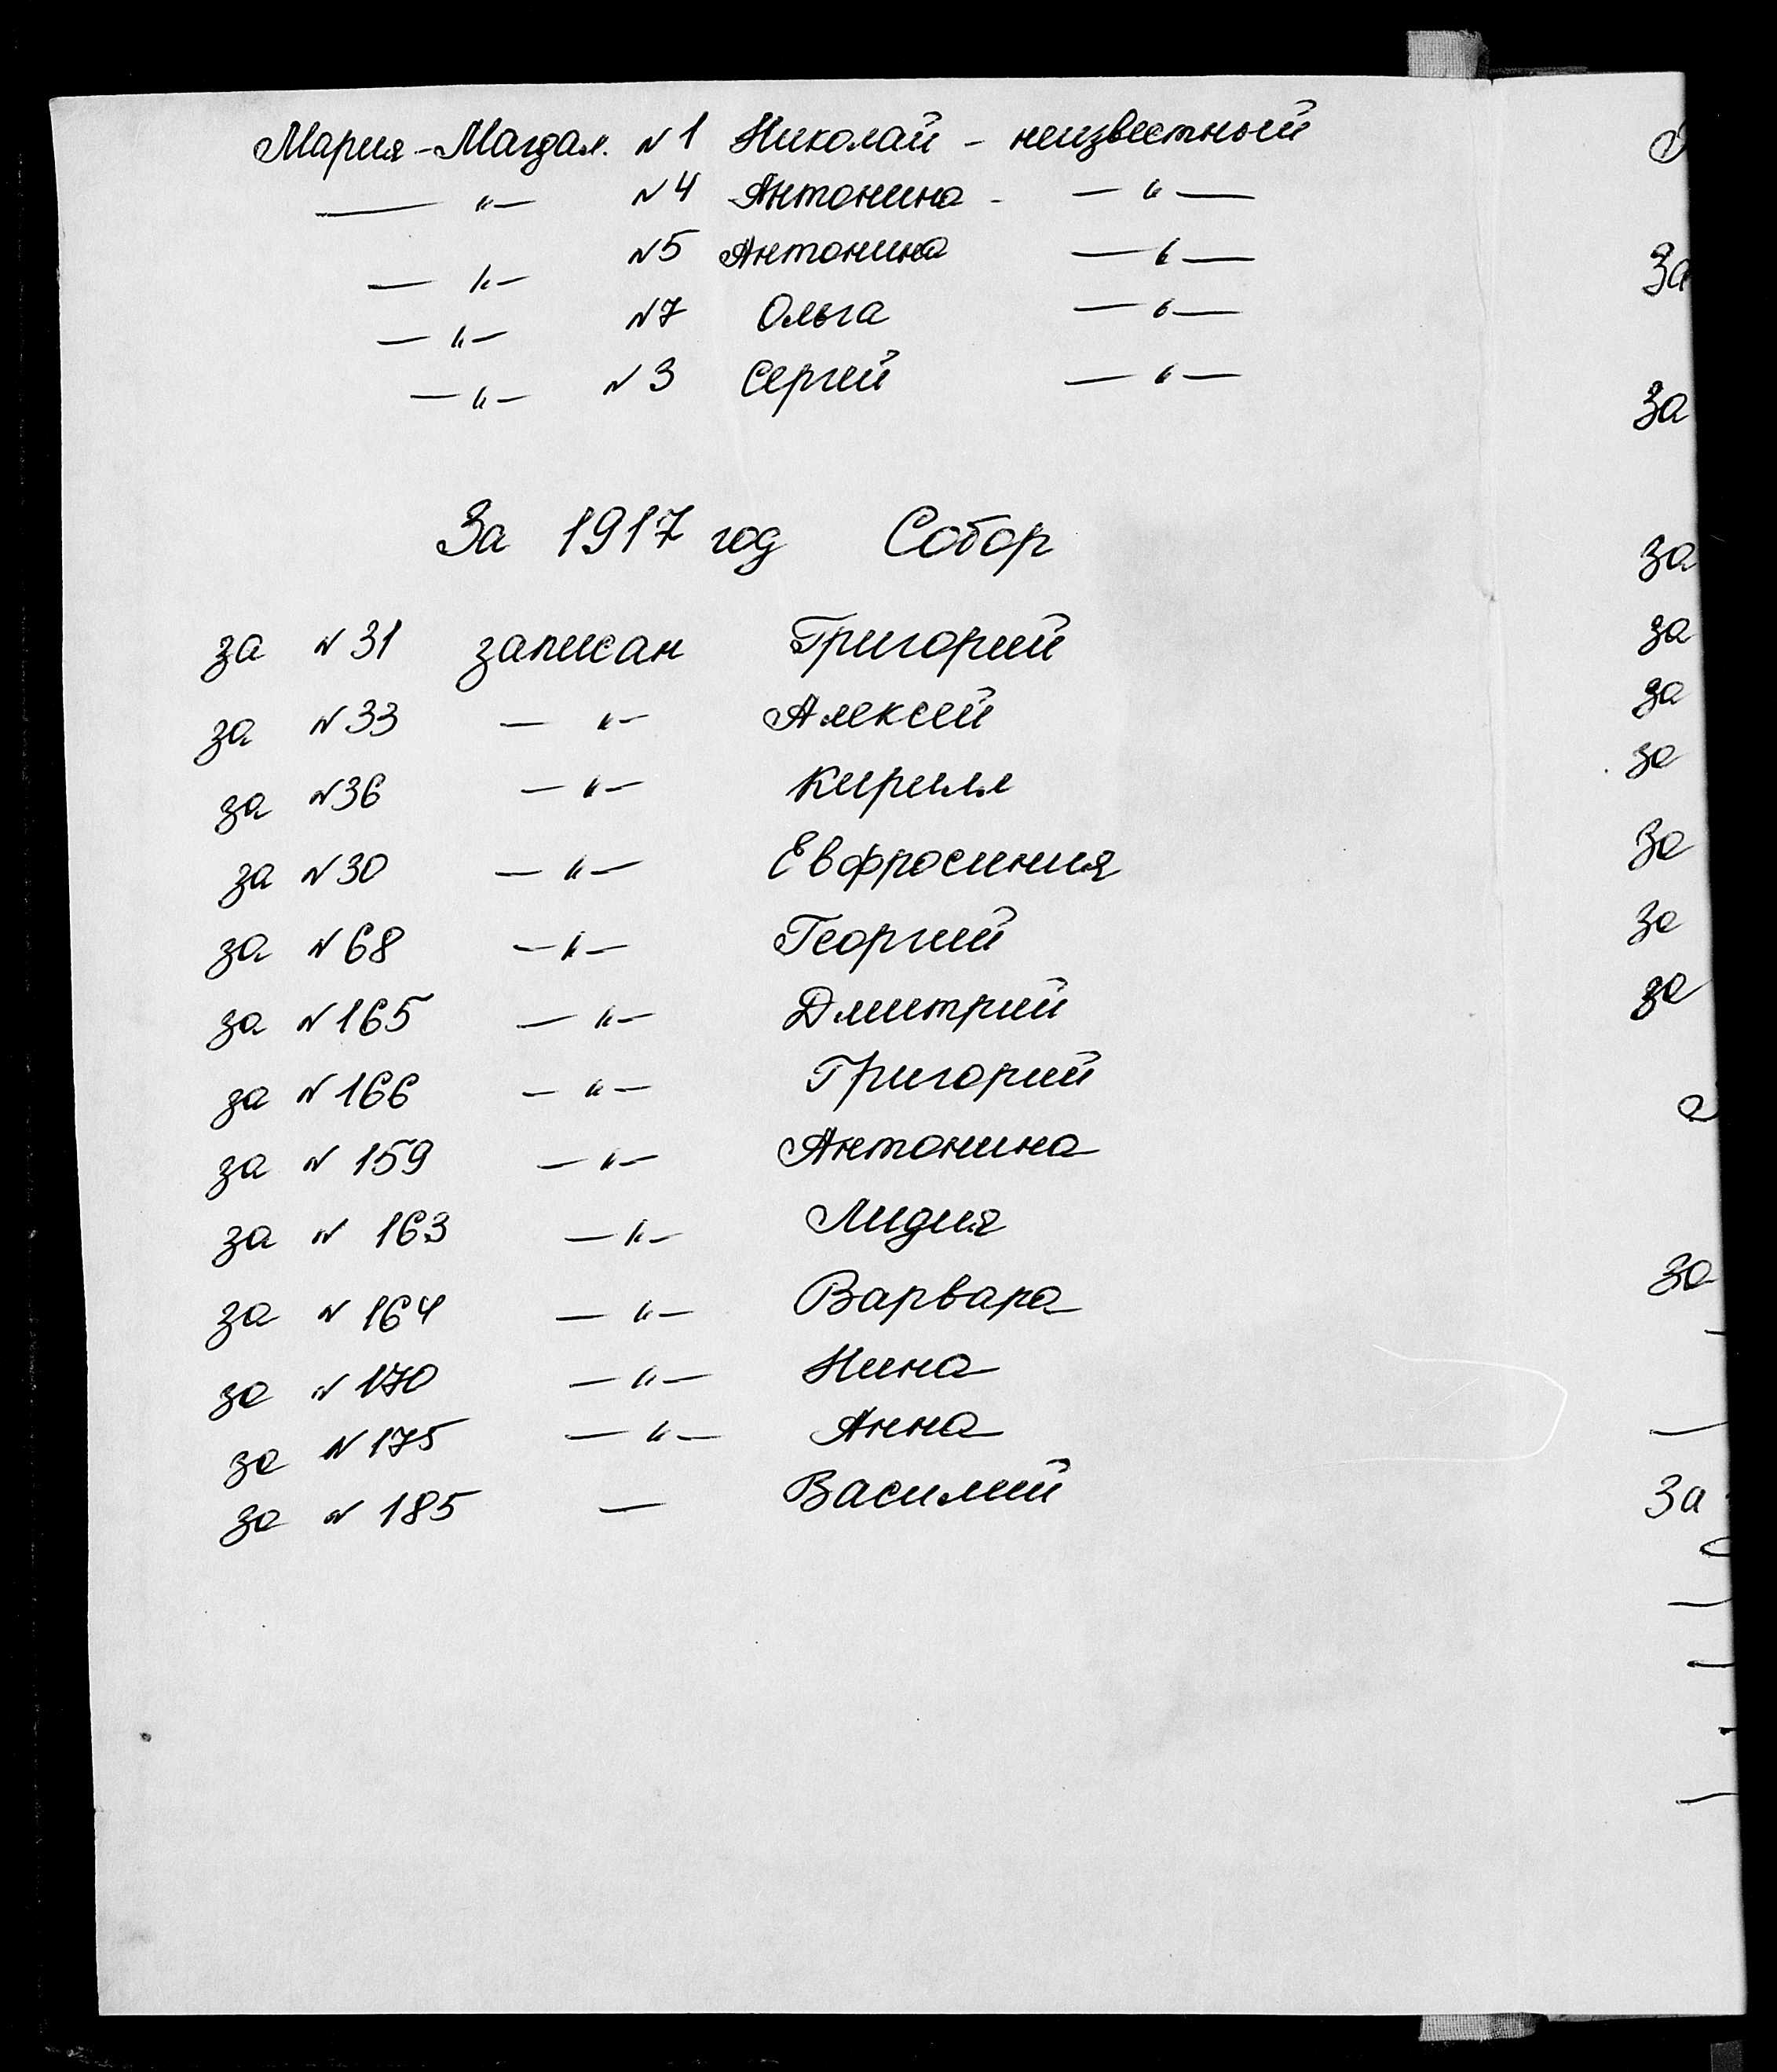 Мария-Магдал. №1 Николай - неизвестный
— " — №4 Антонина - — " —
— " — №5 Антонина — " —
— " — №7 Ольга — " —
— " — №3 Сергей — " —
За 1917 год Собор
за №31 записан Григорий
за №33 — " — Алексей
за №36 — " — Кирилл
за №30 — " — Евфросиния
за №68 — " — Георгий
за №165 — " — Дмитрий
за №166 — " — Григорий
за №159 — " — Антонина
за №163 — " — Лидия
за №164 — " — Варвара
за №170 — " — Нина
за №175 — " — Анна
за №185 — Василий
За
За
за
за
за
за
За
За
за
за
За